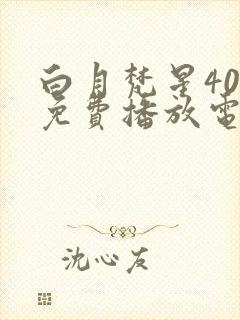 白月梵星40
免費播放電
沈心友